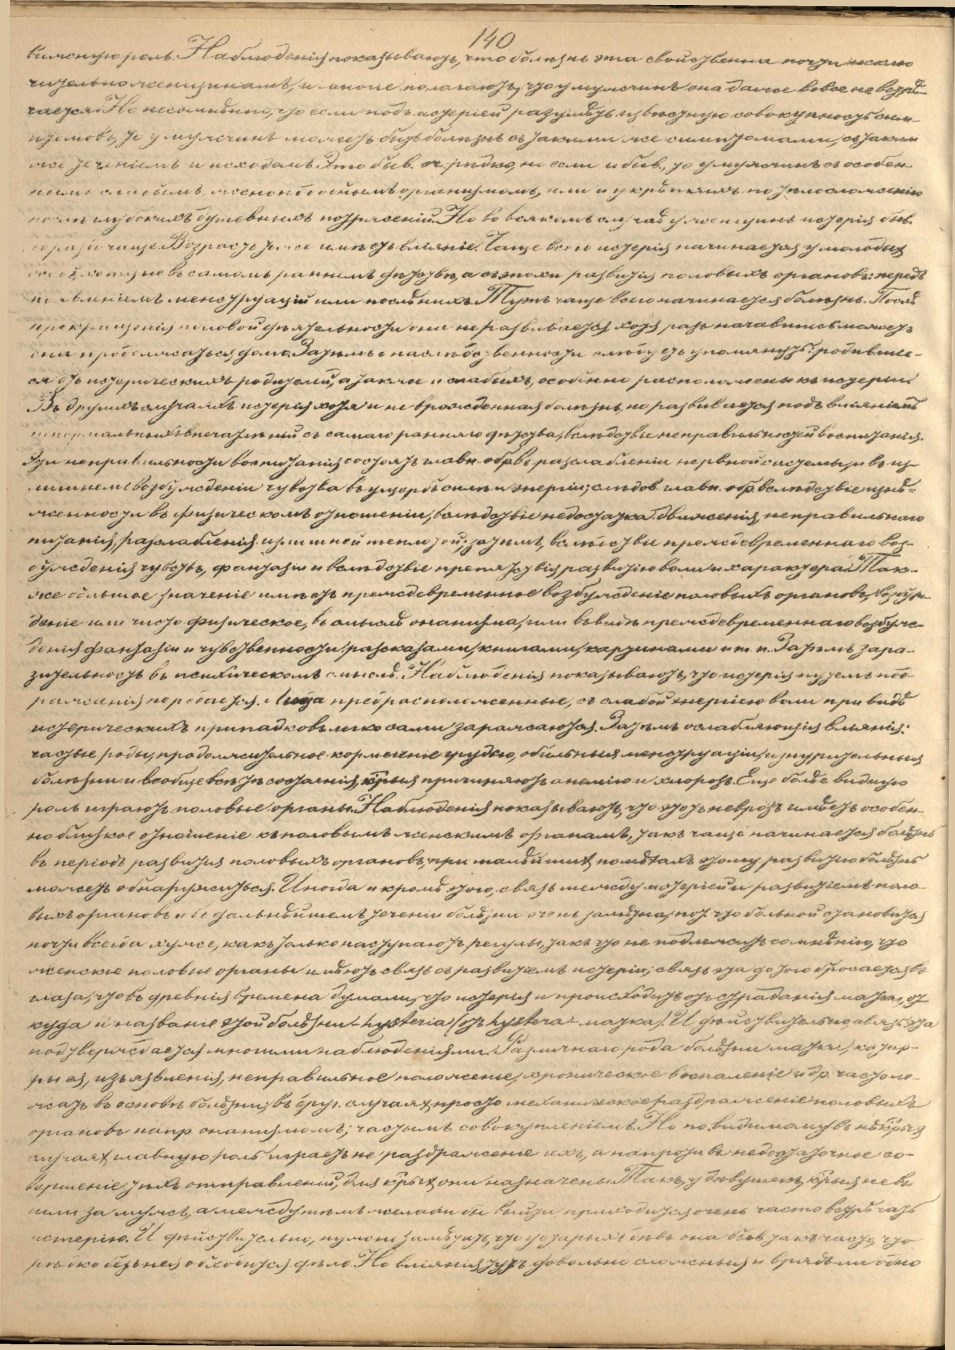 140
роль. Наблюденія показываютъ, что болѣзнь эта свойственна почти исклю
чительно женщинамъ, и многіе полагаютъ, что у мужчинъ она даже вовсе не встрѣ-
чается. Но несомнѣнно, что если подъ истеріей разумѣть извѣстную совокупность сим-
птомовъ, то у мужчинъ можетъ быть болѣзнь съ такими же симптомами, съ такимъ
же теченіемъ и исходомъ. Это быв. оч. рѣдко, но если и быв., то у мужчинъ съ особен-
нымъ слабымъ женоподобнымъ организмомъ, или и у крѣпкихъ по тѣлосложенію
послѣ глубокихъ душевныхъ потрясеній. Но во всякомъ случаѣ у женщинъ истерія быв.
гораздо чаще. Возрастъ также имѣетъ вліяніе. Чаще всего истерія начинается у молодыхъ
не въ самомъ раннемъ дѣтствѣ, а въ эпохи развитія половыхъ органовъ: передъ
появленіемъ менструацій или послѣ нихъ. Тутъ чаще всего начинается болѣзнь. Послѣ
прекращенія половой дѣятельности она не развивается, хотя разъ начавшись можетъ
она продолжаться долго. Затѣмъ о наслѣдственности слѣдуетъ упомянуть: родившіе-
ся отъ истерическихъ родителей, а также и слабыхъ, особенно расположены къ истеріи.
Въ другихъ случаяхъ истерія хотя и не врожденная болѣзнь, но развивается подъ вліяніемъ
ненормальныхъ впечатлѣній съ самаго ранняго дѣтства, вслѣдствіе неправильностей воспитанія.
Эти неправильности воспитанія состоятъ главн. обр. въ разслабленіи нервной системы, и въ из-
лишнемъ возбужденіи чувства въ ущербъ силы и энергіи; слѣдов. главн. обр. вслѣдствіе изнѣ-
женности въ физическомъ отношеніи, вслѣдствіе недостатка движенія, неправильнаго
питанія, разслабленія излишней теплотой; затѣмъ, вслѣдствіе преждевременнаго воз-
бужденія чувствъ, фантазіи и вслѣдствіе препятствія развитію воли и характера. Так-
же большое значеніе имѣетъ преждевременное возбужденіе половыхъ органовъ, возбуж-
деніе или чисто физическое, въ смыслѣ онанизма, или въ видѣ преждевременнаго возбуж-
денія фантазіи и чувственности, разсказами, книгами, картинами и т. п. Затѣмъ зара-
зительность въ психическомъ смыслѣ. Наблюденія показываютъ, что истерія путемъ под-
ражанія передается. Лица предрасположенные, съ слабой энергіею воли при видѣ
истерическихъ припадковъ легко сами заражаются. Затѣмъ ослабляющія вліянія:
частые роды, продолжительное кормленіе грудью, обильныя менструаціи, изнурительныя
болѣзни и вообще всѣ тѣ состоянія, к̃рыя причиняютъ анемію и хлорозъ. Еще болѣе видную
роль играютъ половые органы. Наблюденія показываютъ, что этотъ неврозъ имѣетъ особен-
но близкое отношеніе къ половымъ женскимъ органамъ, такъ чаще начинается болѣзнь
въ періодъ развитія половыхъ органовъ, при малѣйшихъ помѣхахъ этому развитію болѣзнь
можетъ обнаружиться. Иногда и кромѣ того, связь между истеріей и развитіемъ поло-
выхъ органовъ и въ дальнѣйшемъ теченіи болѣзни очень замѣтна, что больной становится
почти всегда хуже, какъ только наступаютъ регулы, такъ что не подлежитъ сомнѣнію, что
женскіе половые органы имѣютъ связь съ развитіемъ истеріи; связь эта до того бросается въ
глаза, что въ древнія времена думали, что истерія и происходитъ отъ страданія матки, от-
куда и названіе этой болѣзни hysteria (отъ hystera - матка). И дѣйствительно связь эта
подтверждается многими наблюденіями. Различнаго рода болѣзни матки, катар-
ры ея, изъязвленія, неправильное положеніе, хроническое воспаленіе и др. часто ле-
жатъ въ основѣ болѣзни; въ друг. случаяхъ просто механическое раздраженіе половыхъ
органовъ напр. онанизмомъ, частымъ совокупленіемъ. Но повидимому въ нѣк̃рыхъ
случаяхъ главную роль играетъ не раздраженіе ихъ, а напротивъ недостаточное со-
вершеніе тѣхъ отправленій, для к̃рыхъ они назначены. Такъ, у дѣвушекъ, к̃рыя не вы
шли замужъ, а между тѣмъ желали бы выйти, приходится очень часто встрѣчать
истерію. И дѣйствительно, нужно замѣтить, что у старыхъ дѣвъ она быв. такъ часто, что
рѣдко безъ нея обходится дѣло. Но вліянія тутъ довольно сложныя и врядъ ли одно